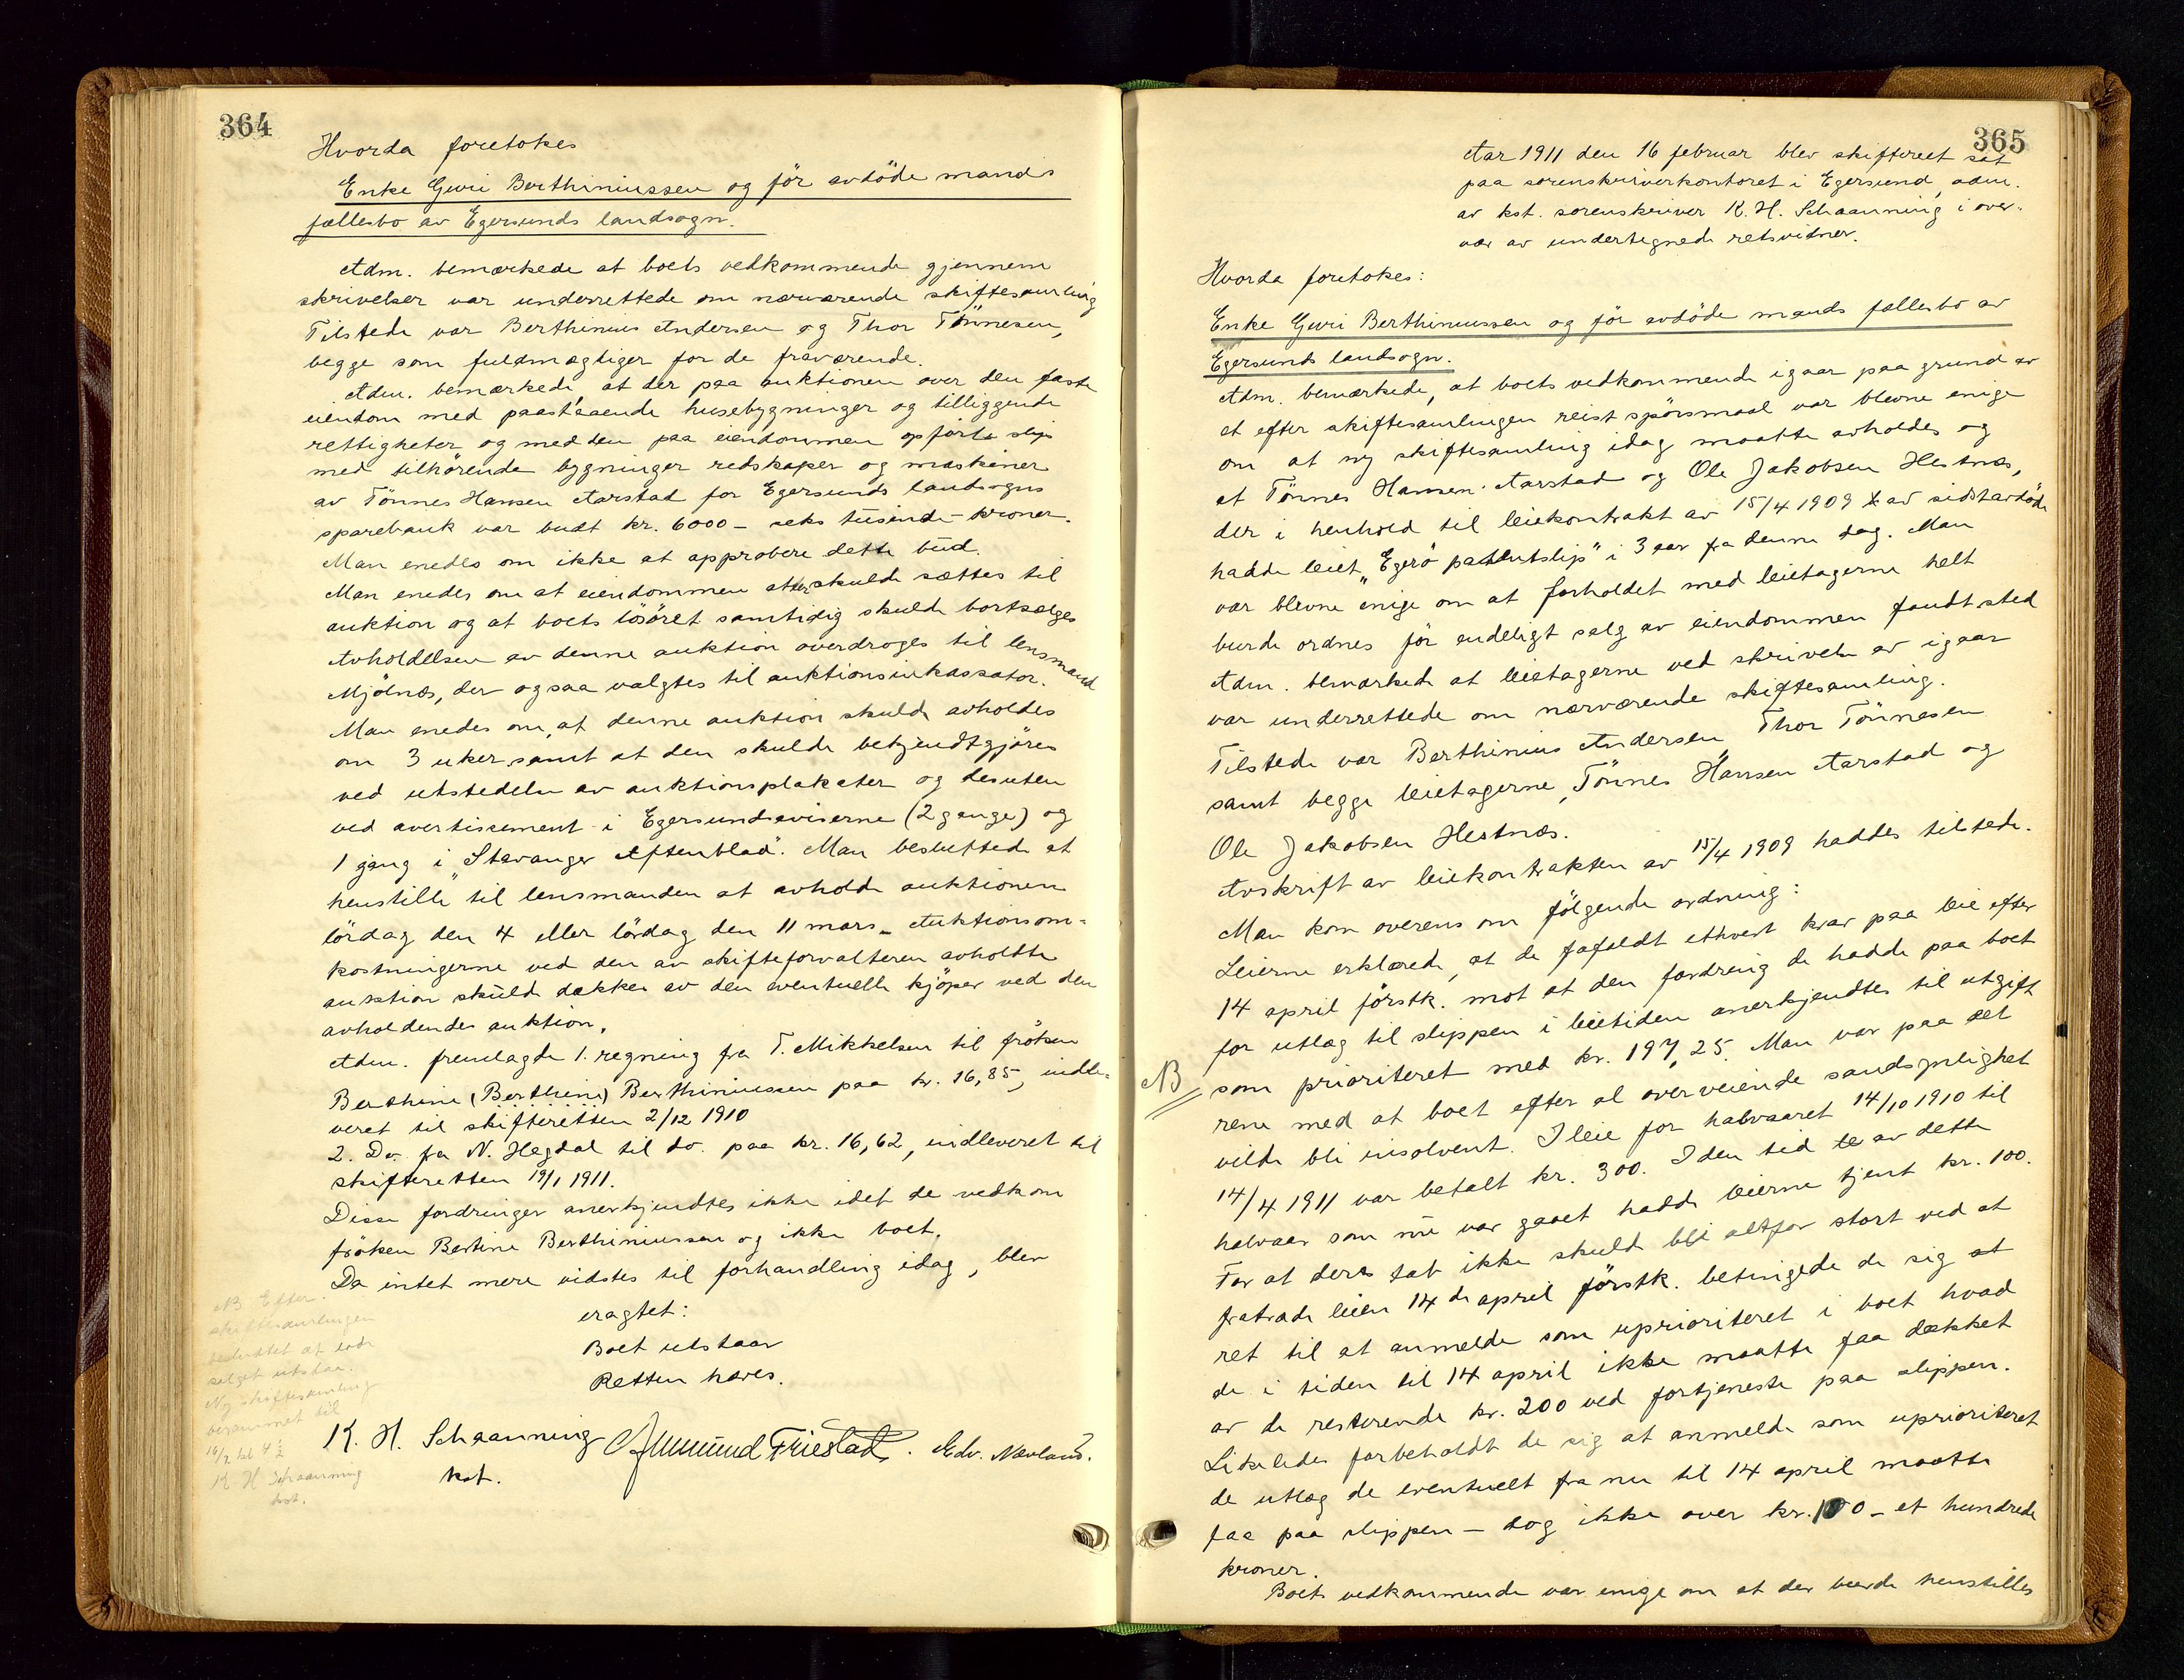 364
Hvorda foretokes
Enke Guri Berthiniussen og før avdöde mands
fællesbo av Egersunds landsogn.
Adm. bemærkede at boets vedkommende gjennem
skrivelser var underrettede om nærværende skiftesamling
Tilstede var Berthinius Andersen og Thor Tönnesen,
begge som fuldmægtiger for de fraværende.
Adm. bemærkede at der paa auktionen over den faste
eiendom med paastaaende husebygninger og tilliggende
rettigheter og med den paa eiendommen opförte slip
med tilhörende bygninger redskaper og maskiner
av Tönnes Hansen Aarstad for Egersunds landsogns
sparebank var budt kr. 6000 - seks tusinde - kroner.
Man enedes om ikke at approbere dette bud.
Man enedes om at eiendommen atter skulde sættes til
auktion og at boets lösöret samtidig skulde bortsælges
Avholdelsen av denne auktion overdroges til lensmand
Mjölnæs, der ogsaa valgtes til auktionsinkassator.
Man enedes om, at denne auktion skulde avholdes
om 3 uker samt at den skulde bekjendtgjöres
ved utstedelse av auktionsplakater og desuten
ved avertissement i Egersundsaviserne (2 gange) og
1 gang i „Stavanger Aftenblad". Man besluttede at
henstille til lensmanden at avholde auktionen
lördag den 4 eller lördag den 11 mars. Auktionsom-
kostningerne ved den av skifteforvalteren avholdte
auktion skulde dækkes av den eventuelle kjöper ved den
avholdendes auktion.
Adm. fremlagde 1. regning fra T. Mikkelsen til fröken
Berthine (Berthine) Berthiniussen paa kr. 16,85, indle-
veret til skifteretten 2/12 1910
2. Do. fra N. Hegdal til do. paa kr. 16,62, indleveret til
skifteretten 19/1 1911.
Disse fordringer anerkjendtes ikke idet de vedkom
fröken Bertine Berthiniussen og ikke boet.
Da intet mere vidstes til forhandling idag, blev
eragtet:
Boet utstaar
Retten hæves.
NB Efter
skiftesamlingen
besluttet at
salget utstaar.
Ny skiftesamling
berammet til
16/2 kl 4 1/2
K H Schaanning
kst.
K. H. Schaanning Aamund Friestad. Edv. Nevland.
kst.
365
Aar 1911 den 16 februar blev skifteret sat
paa sorenskriverkontoret i Egersund, adm.
av kst. sorenskriver K. H. Schaanning i over-
vær av undertegnede retsvidner.
Hvorda foretokes:
Enke Guri Berthiniussen og för avdöde mands fællesbo av
Egersunds landsogn.
Adm. bemærkede, at boets vedkommende igaar paa grund av
et efter skiftesamlingen reist spörsmaal var blevne enige
om at ny skiftesamling idag maatte avholdes og
at Tönnes Hansen Aarstad og Ole Jakobsen Hestnæs,
der i henhold til leiekontrakt av 15/4 1909 av sidstavdöde
hadde leiet „Egerö patentslip" i 3 aar fra denne dag. Man
var blevne enige om at forholdet med leietagerne helt
burde ordnes för endeligt salg av eiendommen fandt sted
Adm. bemærkede at leietagerne ved skrivelse av igaar
var underrettede om nærværende skiftesamling.
Tilstede var Berthinius Andersen Thor Tönnesen
samt begge leietagerne, Tönnes Hansen Aarstad og
Ole Jakobsen Hestnæs.
Avskrift av leiekontrakten av 15/4 1909 haddes tilstede.
Man kom overens om fölgende ordning:
Leierne erklærede, at de fafaldt ethvert krav paa leie efter
14 april förstk. mot at den fordring de hadde paa boet
for utlæg til slippen i leietiden anerkjendtes til utgift
NB som prioriteret med kr. 197,25. Man var paa det
rene med at boet efter al overveiende sandsynlighet
vilde bli insolvent. I leie for halvaaret 14/10 1910 til
14/4 1911 var betalt kr. 300. I den tid av dette
halvaar som nu var gaaet hadde leierne tjent kr. 100.
For at deres tab ikke skulde bli altfor stort ved at
fratræde leien 14de april förstk. betingede de sig at
ret til at anmelde som uprioriteret i boet hvad
de i tiden til 14 april ikke maatte faa dækket
av de resterende kr. 200 ved fortjeneste paa slippen.
Likeledes forbeholdt de sig at anmelde som uprioriteret
de utlæg de eventuelt fra nu til 14 april maatte
faa paa slippen - dog ikke over kr. 100 - et hundrede
kroner.
Boets vedkommende var enige om at der burde henstilles